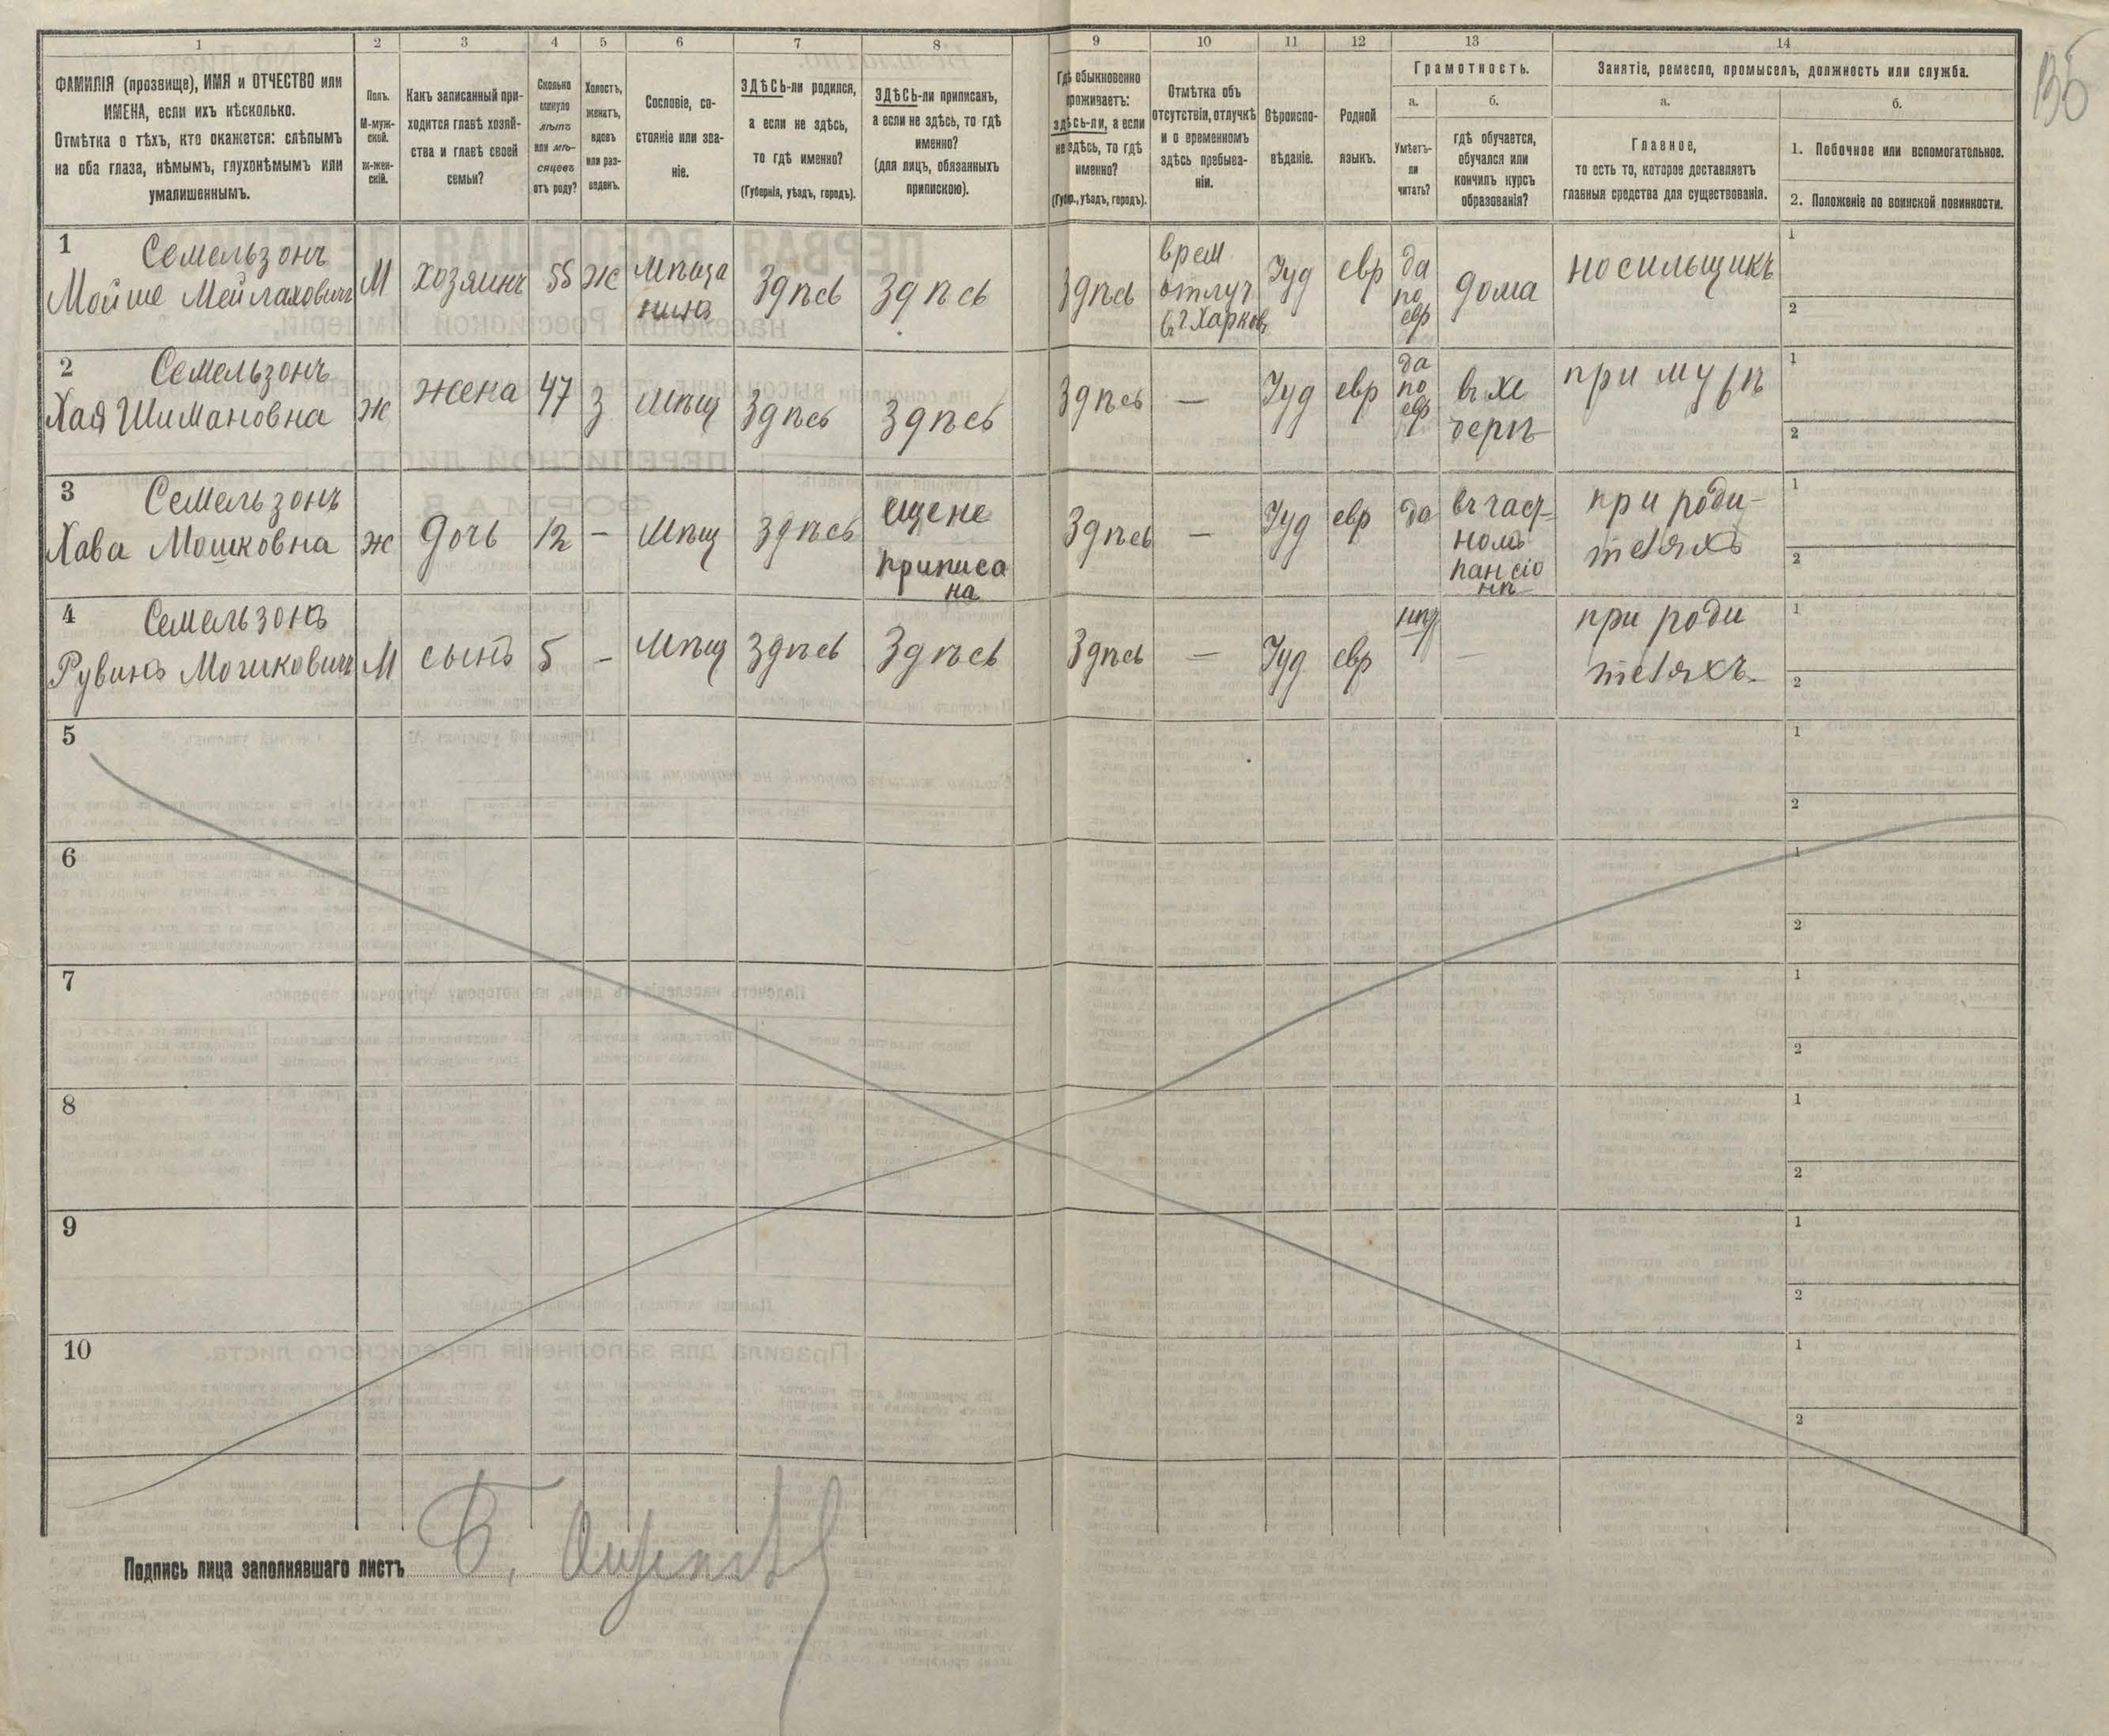 135
1 2 3 4 5 6 7 8 9 10 11 12 13 14
ФАМИЛІЯ (прозвище), ИМЯ и ОТЧЕСТВО или
ИМЕНА, если ихъ нѣсколько.
Отмѣтка о тѣхъ, кто окажется: слѣпымъ
на оба глаза, нѣмымъ, глухонѣмымъ или
умалишеннымъ.
Полъ.
М-муж-
ской.
Ж-жен-
скій.
Какъ записанный при-
ходится главѣ хозяй-
ства и главѣ своей
семьи?
Сколько
минуло
лѣтъ
или мѣ-
сяцевъ
отъ роду?
Холостъ,
женатъ,
вдовъ
или раз-
веденъ.
Сословіе, со-
стояніе или зва-
ніе.
ЗДѢСЬ-ли родился,
а если не здѣсь,
то гдѣ именно?
(Губернія, уѣздъ, городъ).
ЗДѢСЬ-ли приписанъ,
а если не здѣсь, то гдѣ
именно?
(для лицъ, обязанныхъ
припискою).
Гдѣ обыкновенно
проживаетъ:
здѣсь-ли, а если
не здѣсь, то гдѣ
именно?
(Губер., уѣздъ, городъ).
Отмѣтка объ
отсутствіи, отлучкѣ
и о временномъ
здѣсь пребыва-
ніи.
Вѣроиспо-
вѣданіе.
Родной
языкъ.
Грамотность.
а.
Умѣетъ-
ли
читать?
б.
гдѣ обучается,
обучался или
кончилъ курсъ
образованія?
Занятіе, ремесло, промыселъ, должность или служба.
а.
Главное,
то есть то, которое доставляетъ
главныя средства для существованія.
б.
1. Побочное или вспомогательное.
2. Положеніе по воинской повинности.
1
Семельзонъ
Мойше Мейлаховичъ
М
хозяинъ
55
Ж
мѣща
нинъ
Здѣсь
Здѣсь
Здѣсь
врем
отлуч
въ г Харковъ
Іуд
евр
да
по
евр
дома
носильщикъ
1
2
2
Семельзонъ
Хая Шимановна
ж
жена
47
З
мѣщ
Здѣсь
Здѣсь
Здѣсь
—
Іуд
евр
да
по
евр
въ хе
дерѣ
при мужѣ
1
2
3
Семельзонъ
Хава Мошковна
ж
дочь
12
-
мѣщ
Здѣсь
еще не
приписа
на
Здѣсь
-
Іуд
евр
да
въ част-
номъ
пансіо
нѣ
при роди-
теляхъ
1
2
4
Семельзонъ
Рувинъ Мошковичъ
М
сынъ
5
-
мѣщ
Здѣсь
Здѣсь
Здѣсь
—
Іуд
евр
нѣт
—
при роди
теляхъ.
1
2
5
1
2
6
1
2
7
1
2
8
1
2
9
1
2
10
1
2
Подпись лица заполнявшаго листъ